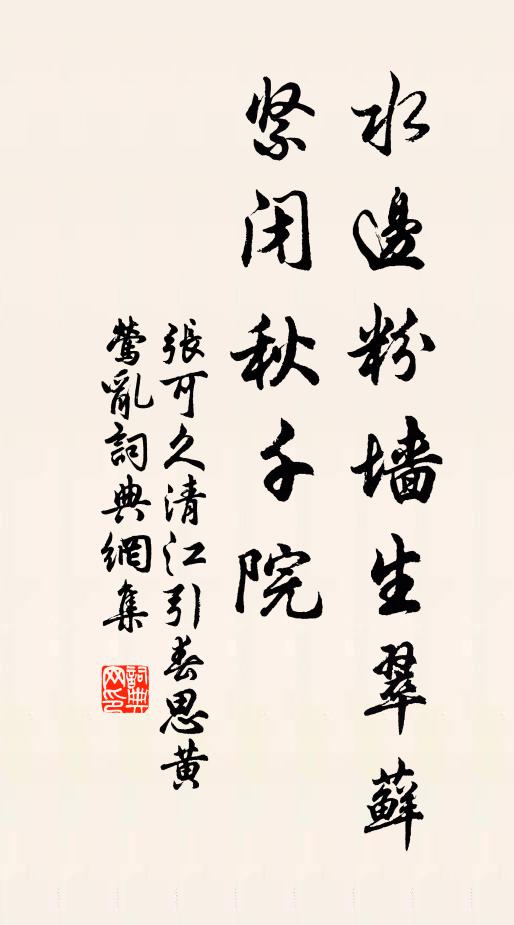 水邊粉墻生翠蘚
緊闭秋千院
張可久清江引春思黄
鶯亂詞典網集
詞典网印